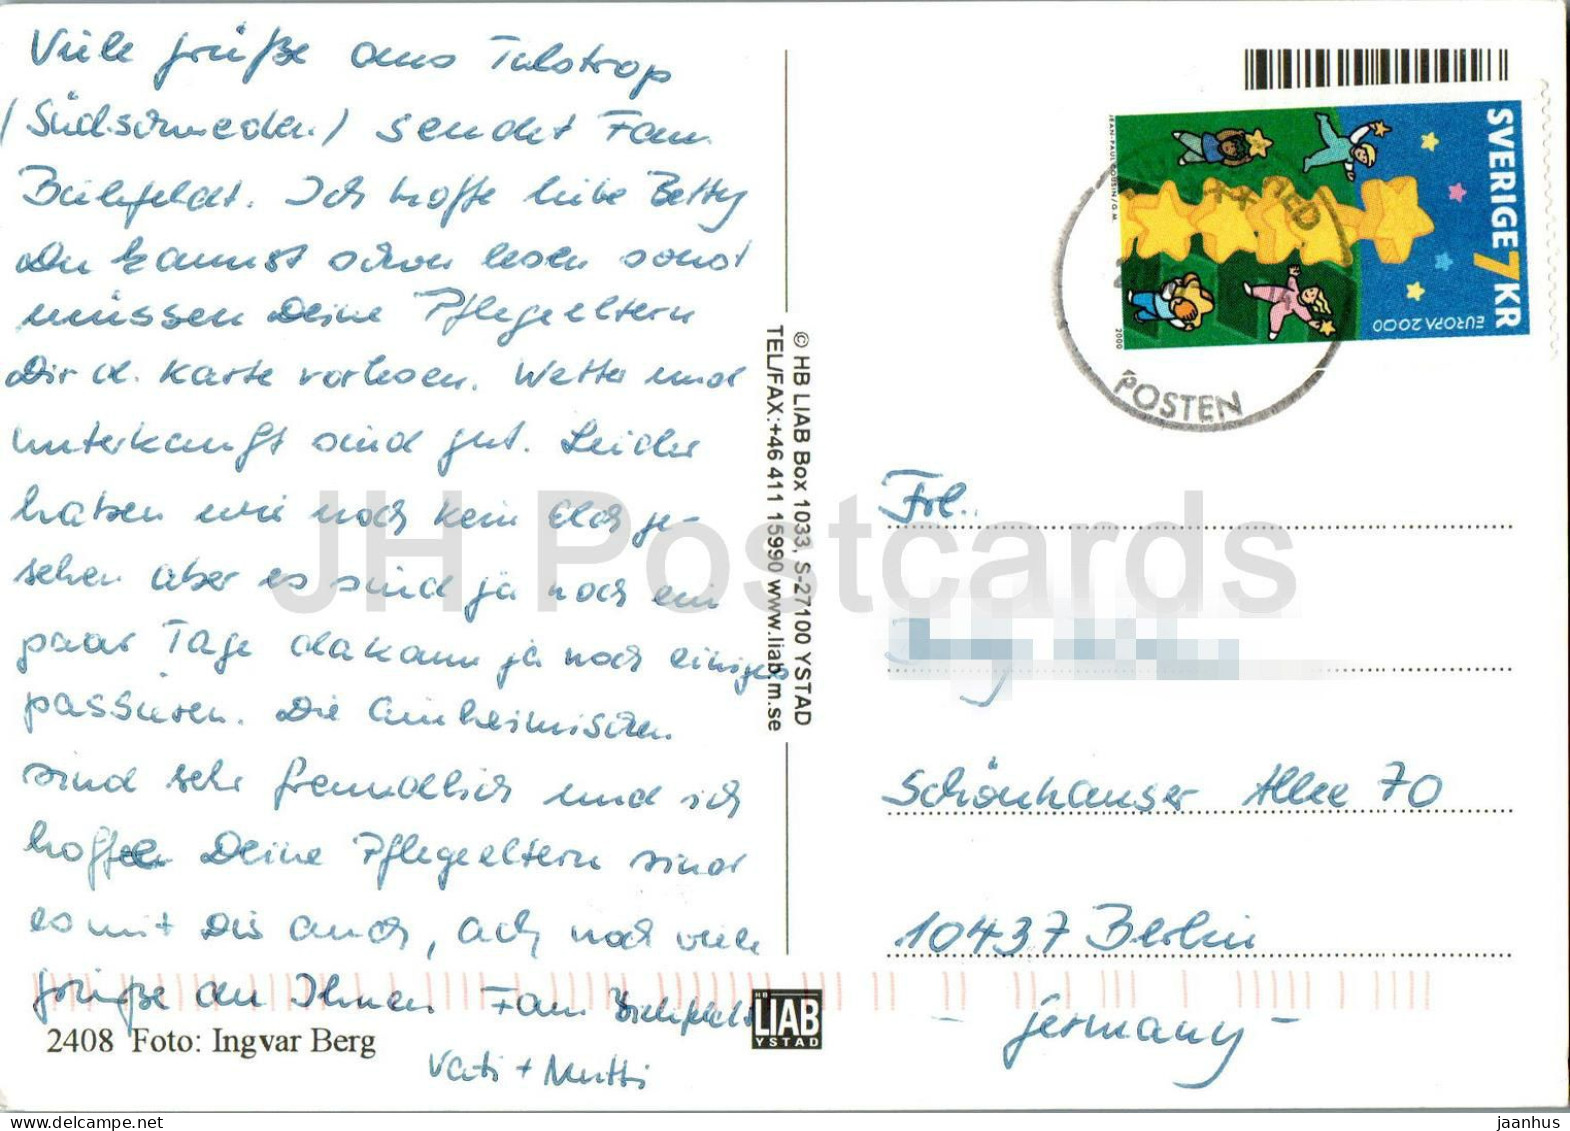 Viele Grüße aus Tulstrop
(Südschweden) sendet Fam.
Buhlfeldt. Ich hoffe liebe Betty
Du kannst schon lesen sonst
müssen Deine Pflegeeltern
Dir d. Karte vorlesen. Wetter und
Unterkunft sind gut. Leider
haben wir noch kein Elch ge-
sehen aber es sind ja noch ein
paar Tage da kann ja noch einiges
passieren. Die Einheimischen
sind sehr freundlich und ich
hoffe Deine Pflegeeltern sind
es mit Dir auch, ach noch viele
Grüße an Ihnen Fam
Vati + Mutti
2408 Foto: Ingvar Berg
© HB LIAB Box 1033, S-27100 YSTAD
TEL/FAX:+46 411 15990 www.liab.m.se
HB
LIAB
YSTAD
SVERIGE 7KR
EUROPA 2000
2000
POSTEN
Frl.
Schönhauser Allee 70
10437 Berlin
- Germany -
JH Postcards
delcampe.net
jaanhus